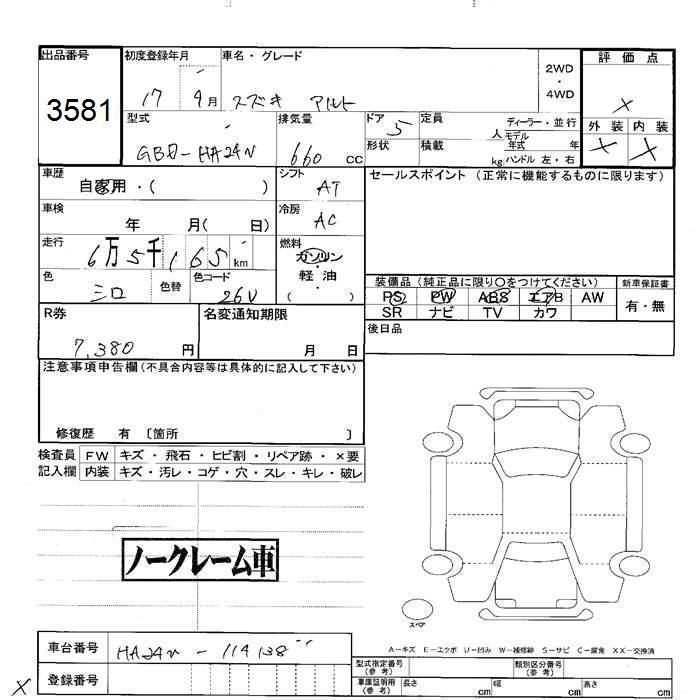 出品番号 初度登録年月 車名・グレード 2WD・4WD 評価点
3581 17 9月 スズキ アルト ×
型式 排気量 ドア 5 定員 人 ディーラー・並行 モデル年式 年 外装 内装
GBD-HA24V 660 cc 形状 積載 kg ハンドル 左・右 × ×
車歴 自家用・( ) シフト AT セールスポイント (正常に機能するものに限ります)
車検 年 月( 日) 冷房 AC
走行 6万5千165km 燃料 ガソリン・軽油 ( )
色 シロ 色替 色コード 26U 装備品 (純正品に限り○をつけてください) 新車保証書
PS PW ABS エアB AW 有・無
SR ナビ TV カワ
R券 7,380円 名変通知期限 月 日 後日品
注意事項申告欄(不具合内容等は具体的に記入して下さい)
修復歴 有 〔箇所 〕
検査員 FW キズ・飛石・ヒビ割・リペア跡・×要
記入欄 内装 キズ・汚レ・コゲ・穴・スレ・キレ・破レ
ノークレーム車
スペア
A-キズ E-エクボ U-凹み W-補修跡 S-サビ C-腐食 XX-交換済
車台番号 HA24V-114138
× 登録番号
型式指定番号(参考) 類別区分番号(参考)
車庫証明用(参考) 長さ cm 幅 cm 高さ cm